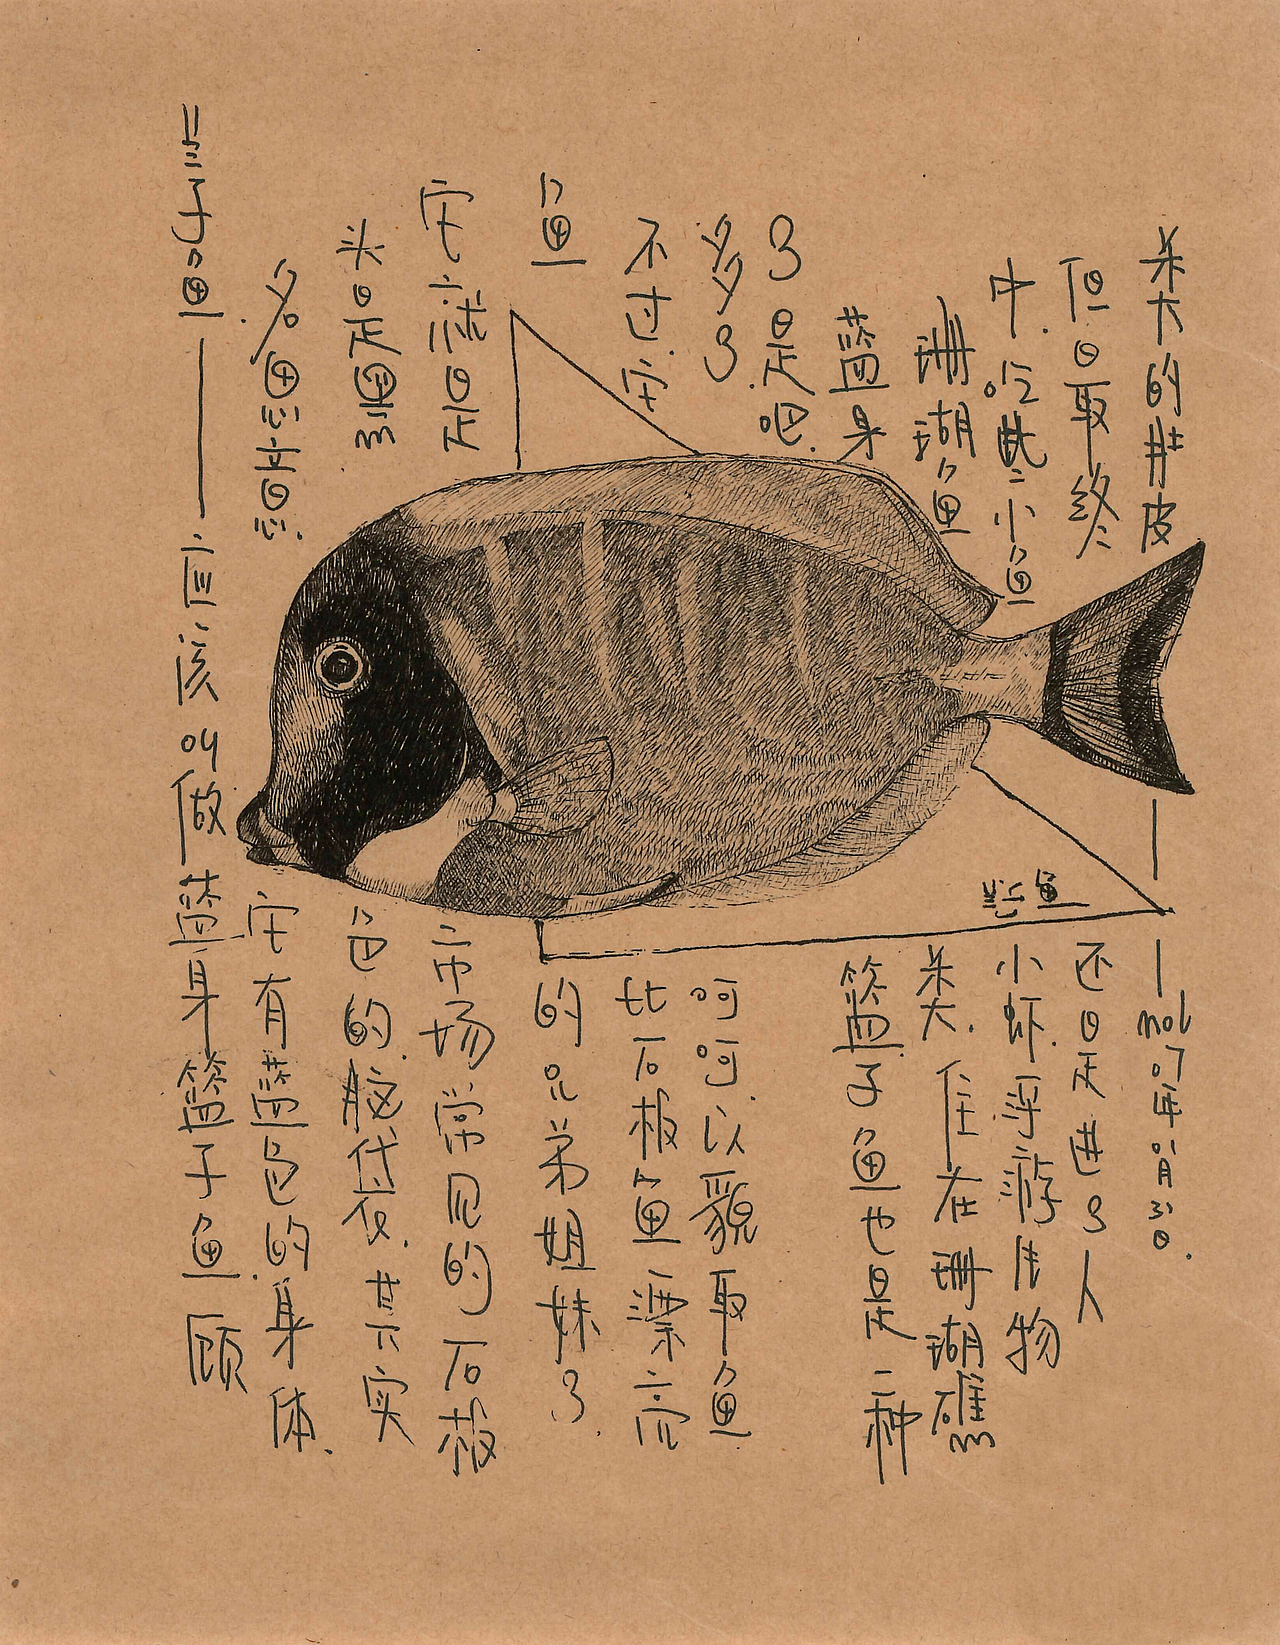 兰子鱼——应该叫做蓝身篮子鱼 顾
名思意思.它有蓝色的身体.
头是黑色的脑袋.其实
它就是市场常见的石板
鱼的兄弟姐妹了.
不过它比石板鱼漂亮
多了.呵呵.以貌取鱼
了是吧.
蓝身篮子鱼也是一种
珊瑚鱼类.住在珊瑚礁
中.吃些小鱼小虾.浮游生物
但最终还是进了人
类的肚皮——nol